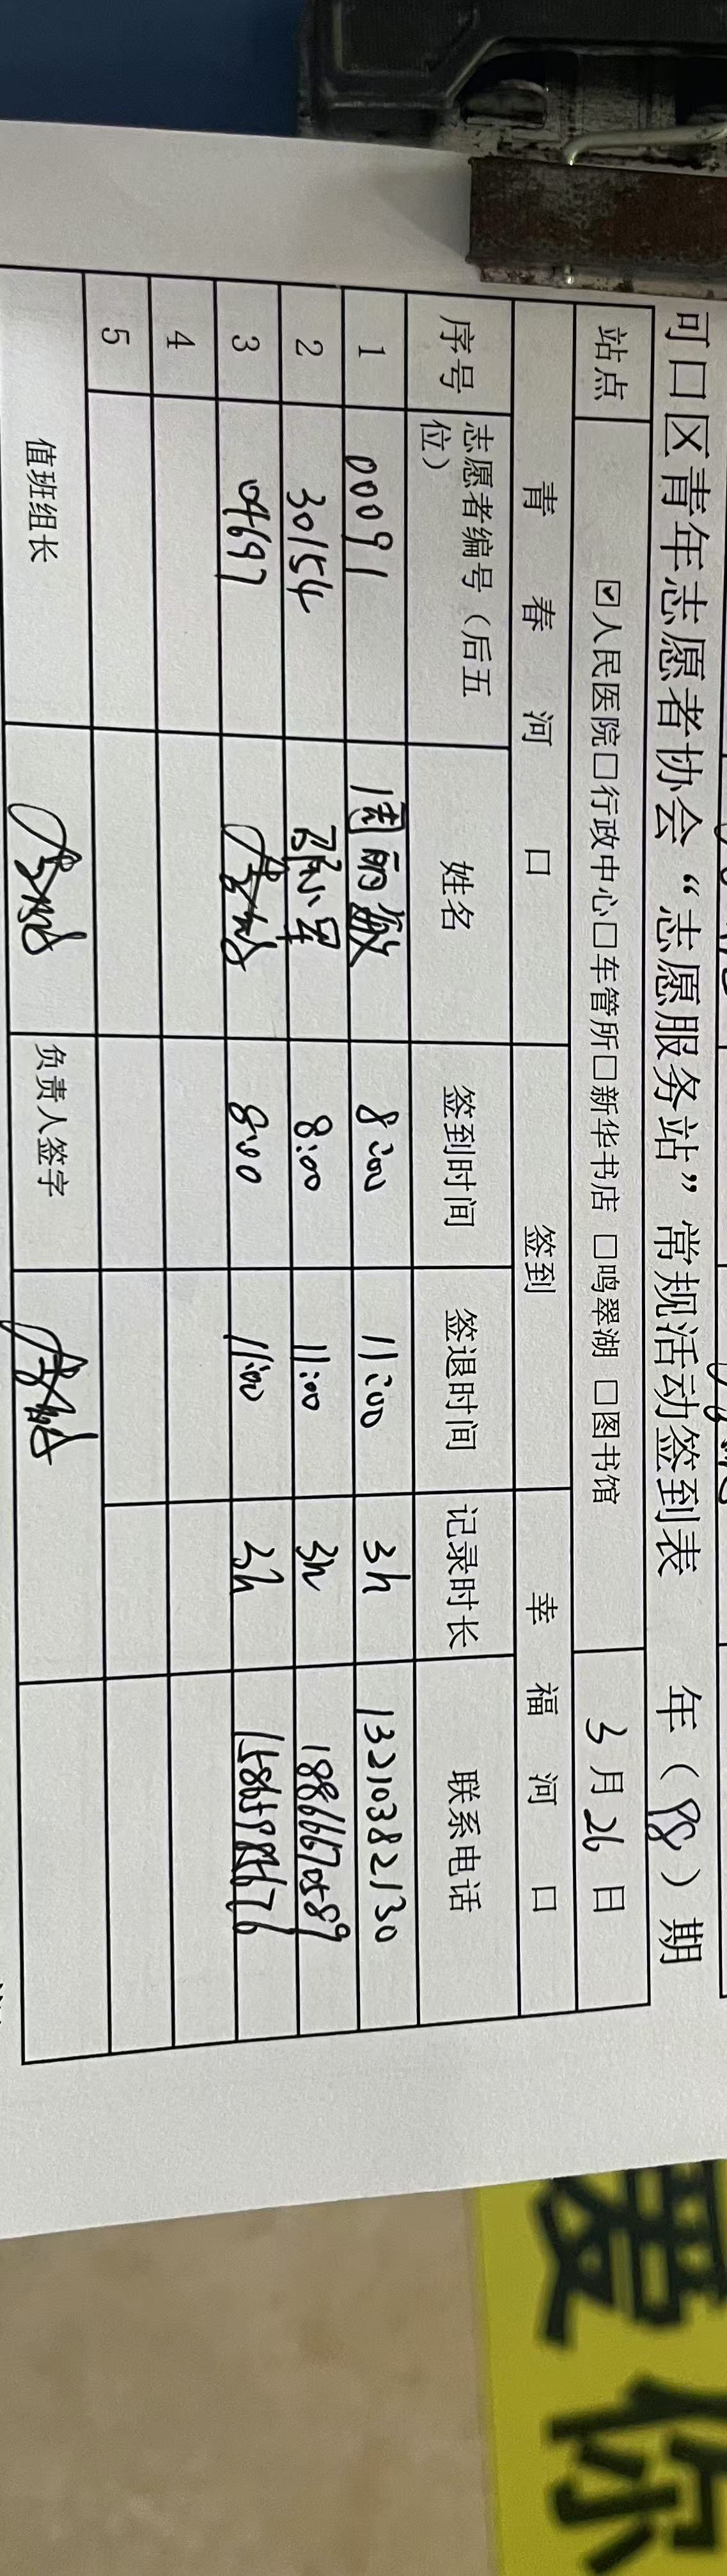 可口区青年志愿者协会“志愿服务站”常规活动签到表 年（98）期
站点 ☑人民医院□行政中心□车管所□新华书店 □鸣翠湖 □图书馆 3月26日
青春河口 签到 幸福河口
序号 志愿者编号（后五位） 姓名 签到时间 签退时间 记录时长 联系电话
1 00091 周丽敏 8:00 11:00 3h 13210382130
2 30154 8:00 11:00 3h 18866670589
3 04697 8:00 11:00 3h
4
5
值班组长 负责人签字
爱你